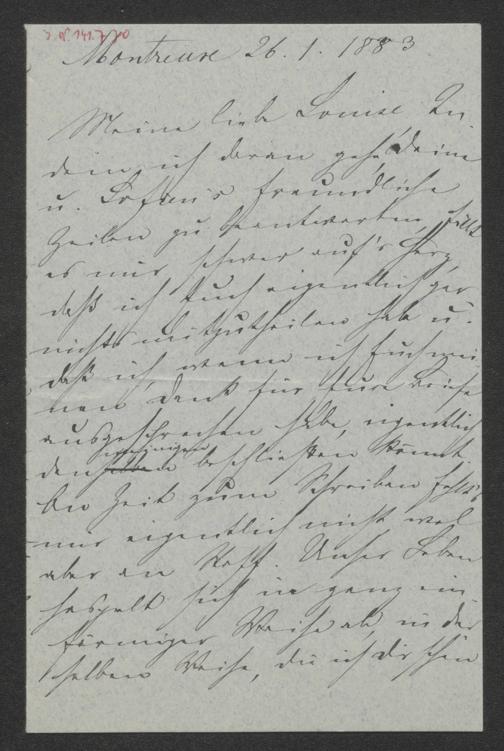 Montreux 26. 1. 1883
Meine liebe Louise. In-
dem ich daran gehe, Deine
u. freundliche
Zeilen zu beantworten, fällt
es mir schwer auf's Herz,
daß ich Euch eigentlich gar
nichts mitzutheilen hab u.
daß ich, wenn ich Euch mei-
nen Dank für Eure Briefe
ausgesprochen habe, eigentlich
den beschließen könnte.
An Zeit zum Schreiben fehlt's
mir eigentlich nicht, wol
aber an Stoff. Unser Leben
haspelt sich in ganz ein-
förmiger Weise ab, in der-
selben Weise, die ich Dir schon